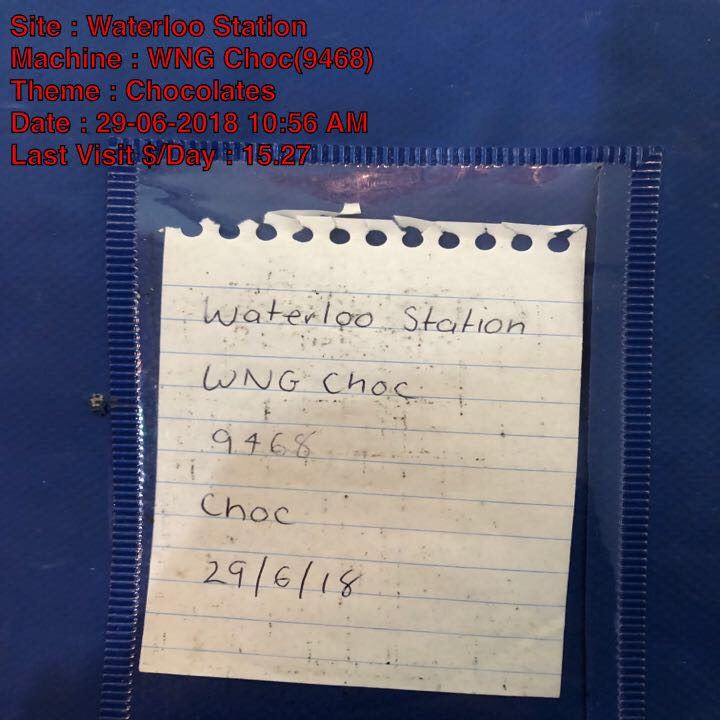 Site : Waterloo Station
Machine : WNG Choc(9468)
Theme : Chocolates
Date : 29-06-2018 10:56 AM
Last Visit $/Day : 15.27
Waterloo Station
WNG Choc
9468
Choc
29/6/18